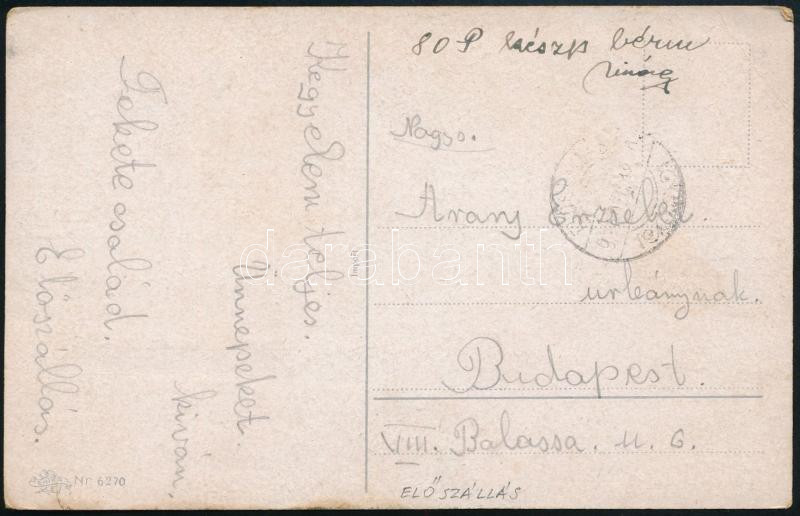 80 P készp bérm
Nagys.
Arany Erzsébet
urleánynak.
Budapest.
VIII. Balassa. u. 6.
ELŐSZÁLLÁS
Kegyelem teljes.
Ünnepeket.
kiván.
Fekete család.
Előszállás.
Nr 6270
darabanth